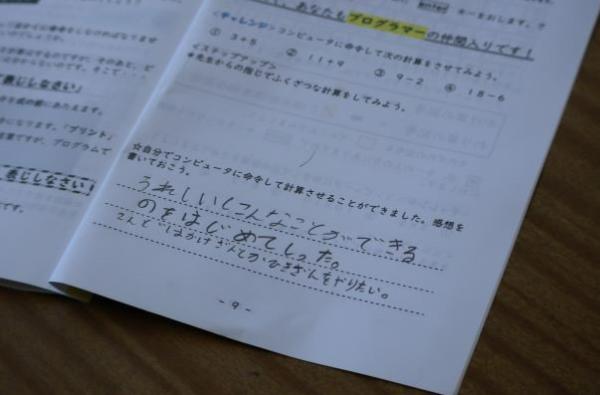 enter キーをおします。
、あなたもプログラマーの仲間入りです！
<チャレンジ>コンピュータに命令して次の計算をさせてみよう。
① 3+5 ② 11+9 ③ 9-2 ④ 18-6
<ステップアップ>
★先生からの指じでふくざつな計算をしてみよう。
☆自分でコンピュータに命令して計算させることができました。感想を
書いておこう。
うれしいしこんなことができる
のをはじめてしった。
こんどはかけざんとかひきざんをやりたい。
- 9 -
表じしなさい」
「プリント」
、プログラムで
表じしなさい！
です。